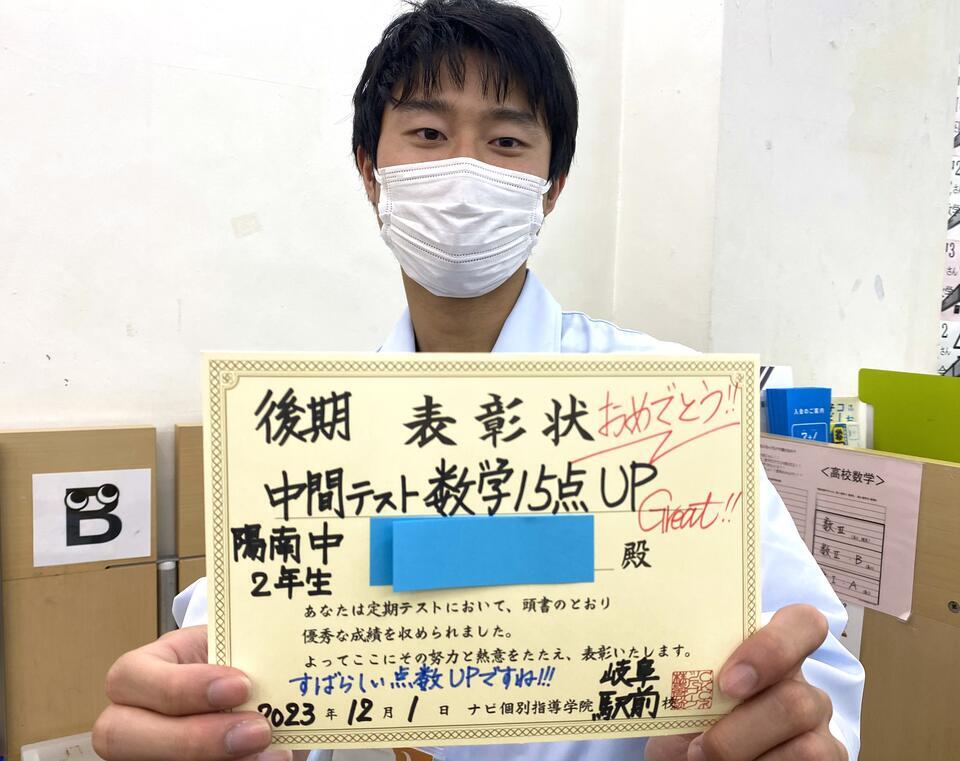 後期 表彰状
おめでとう!!
中間テスト数学15点UP
Great!!
陽南中
2年生
殿
あなたは定期テストにおいて、頭書のとおり
優秀な成績を収められました。
よってここにその努力と熱意をたたえ、表彰いたします。
すばらしい点数UPですね!!!
2023年12月1日 ナビ個別指導学院 岐阜駅前校
B
入会のご案内
<高校数学>
数Ⅲ
数Ⅱ・B
Ⅰ・A